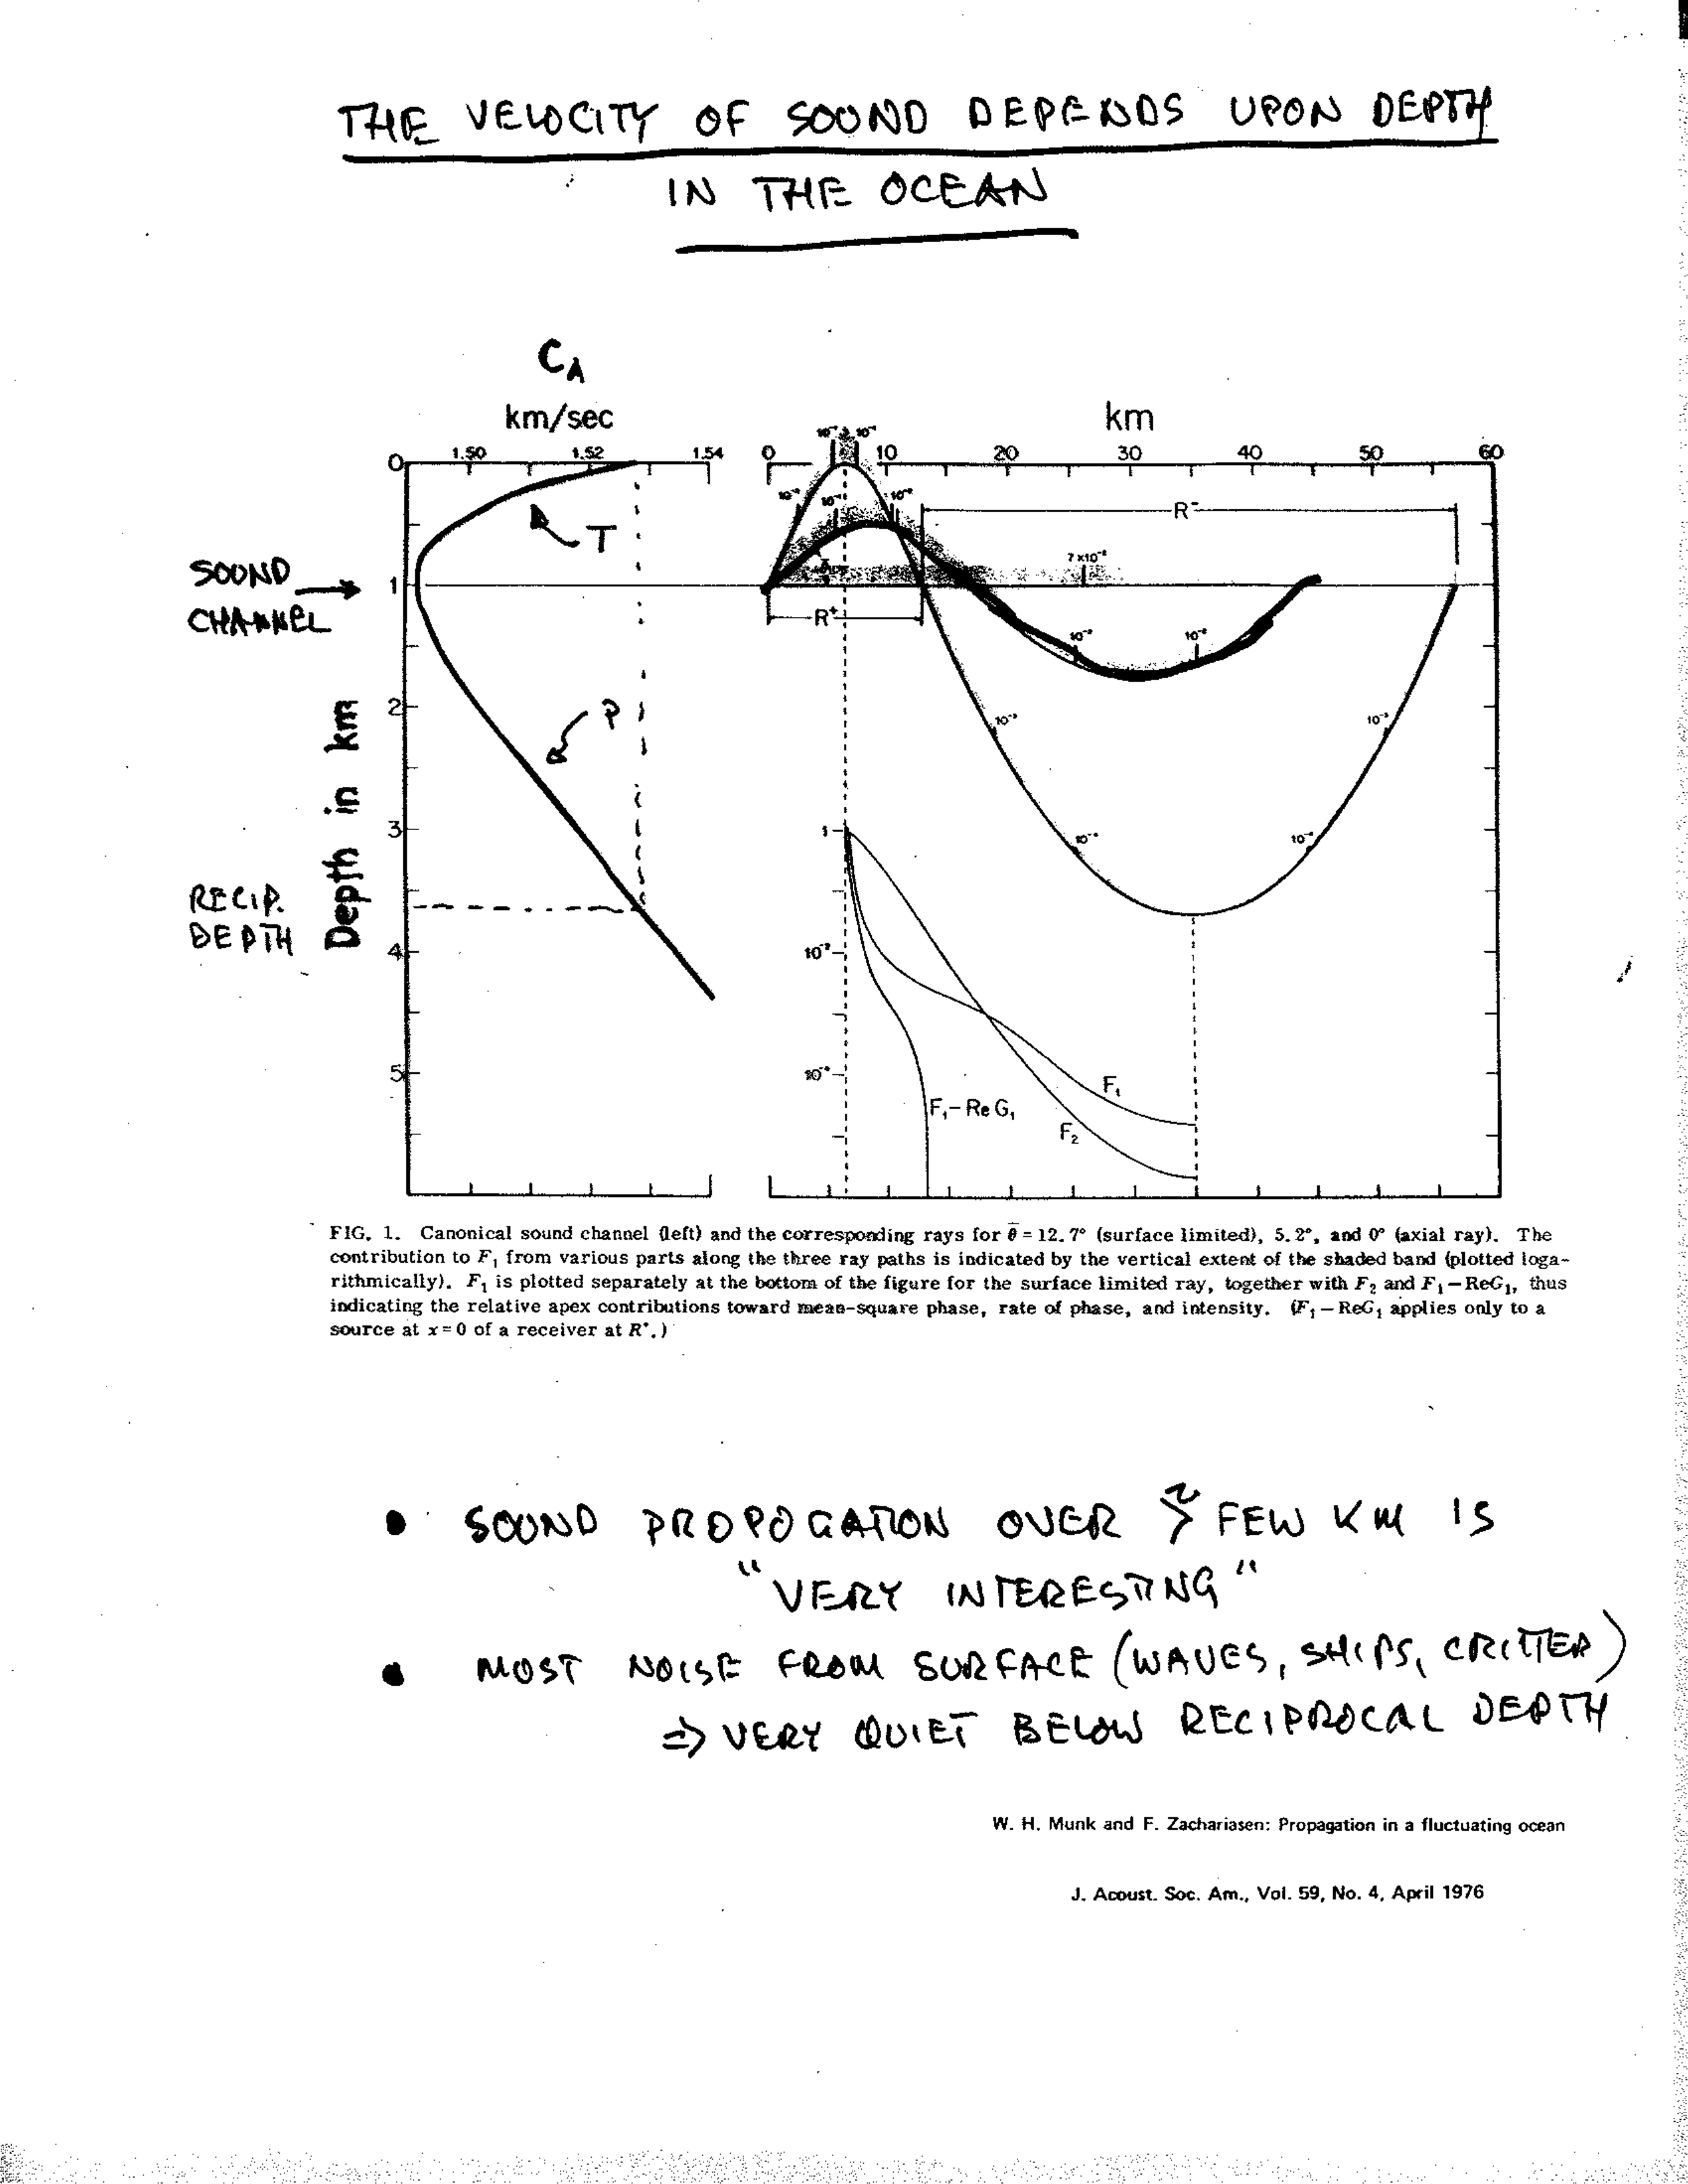 THE VELOCITY OF SOUND DEPENDS UPON DEPTH
IN THE OCEAN
CA
km/sec
km
1.50 1.52 1.54
0 10 20 30 40 50 60
0
10⁻²
10⁻²
R⁻
T
7×10⁻²
SOUND
CHANNEL
1
R⁺
10⁻² 10⁻²
Depth in km
2
P
10⁻³ 10⁻³
3
1
RECIP.
DEPTH
4
10⁻²
5
F₁
F₁-ReG₁
F₂
FIG. 1. Canonical sound channel (left) and the corresponding rays for θ̄ = 12.7° (surface limited), 5.2°, and 0° (axial ray). The
contribution to F₁ from various parts along the three ray paths is indicated by the vertical extent of the shaded band (plotted loga-
rithmically). F₁ is plotted separately at the bottom of the figure for the surface limited ray, together with F₂ and F₁-ReG₁, thus
indicating the relative apex contributions toward mean-square phase, rate of phase, and intensity. (F₁-ReG₁ applies only to a
source at x=0 of a receiver at R⁺.)
• SOUND PROPOGATION OVER ≳ FEW KM IS
"VERY INTERESTING"
• MOST NOISE FROM SURFACE (WAVES, SHIPS, CRITTER)
⇒ VERY QUIET BELOW RECIPROCAL DEPTH
W. H. Munk and F. Zachariasen: Propagation in a fluctuating ocean
J. Acoust. Soc. Am., Vol. 59, No. 4, April 1976